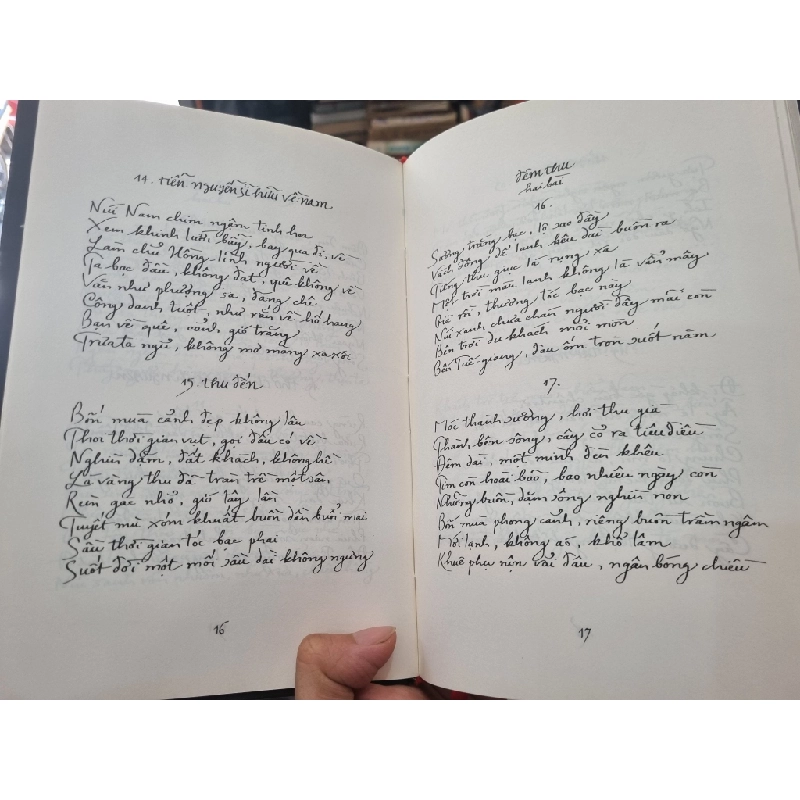 14. tiễn nguyễn sĩ hữu về nam
Núi Nam chim ngậm tình hoa
Xem khinh lưới bẫy, bay qua đi, về
Làm chủ Hồng lĩnh người về
Ta bạc đầu, không đạt, quê không về
Vẫn như phượng sa, đang chi
Công danh tuột, như rắn về hố hang
Bạn về quê, vous, gió trăng
Trên ta ngủ, không mơ màng xa xôi
15. thu đến
Bốn mùa cảnh đẹp không lâu
Thoi thời gian vụt, gọi đầu có về
Nghìn dặm, đất khách, không hề
Lá vàng thu đã tràn trề một sân
Rèm gác nhỏ, gió lây lần
Tuyệt mù xóm khuất buồn dần buổi mai
Sầu thời gian tóc bạc phai
Suốt đời một mối sầu dài không ngừng
16
đêm thu
hai bài
16.
Sương trắng bạc, lộ sao đầy
Vách đông dế lạnh kêu đầu buồn ra
Tiếng thu qua lá rụng xa
Mặt trời màu lạnh không là vẩn mây
Già rồi, thương tóc bạc này
Núi xanh chưa chán người đây mãi còn
Bên trời du khách mỏi mòn
Bến Tuế-giang, đau ốm tròn suốt năm
17.
Mới thanh sương, hơi thu già
Thành bên sông, cây cỏ ra tiêu điều
Đêm dài, một mình đèn khêu
Tim còn hoài bão, bao nhiêu ngày còn
Những buồn, dặm sông nghìn non
Bốn mùa phong cảnh, riêng buồn trầm ngâm
Mới lạnh, không áo, khổ lắm
Khuê phụ nện vải đâu, ngân bóng chiều
17